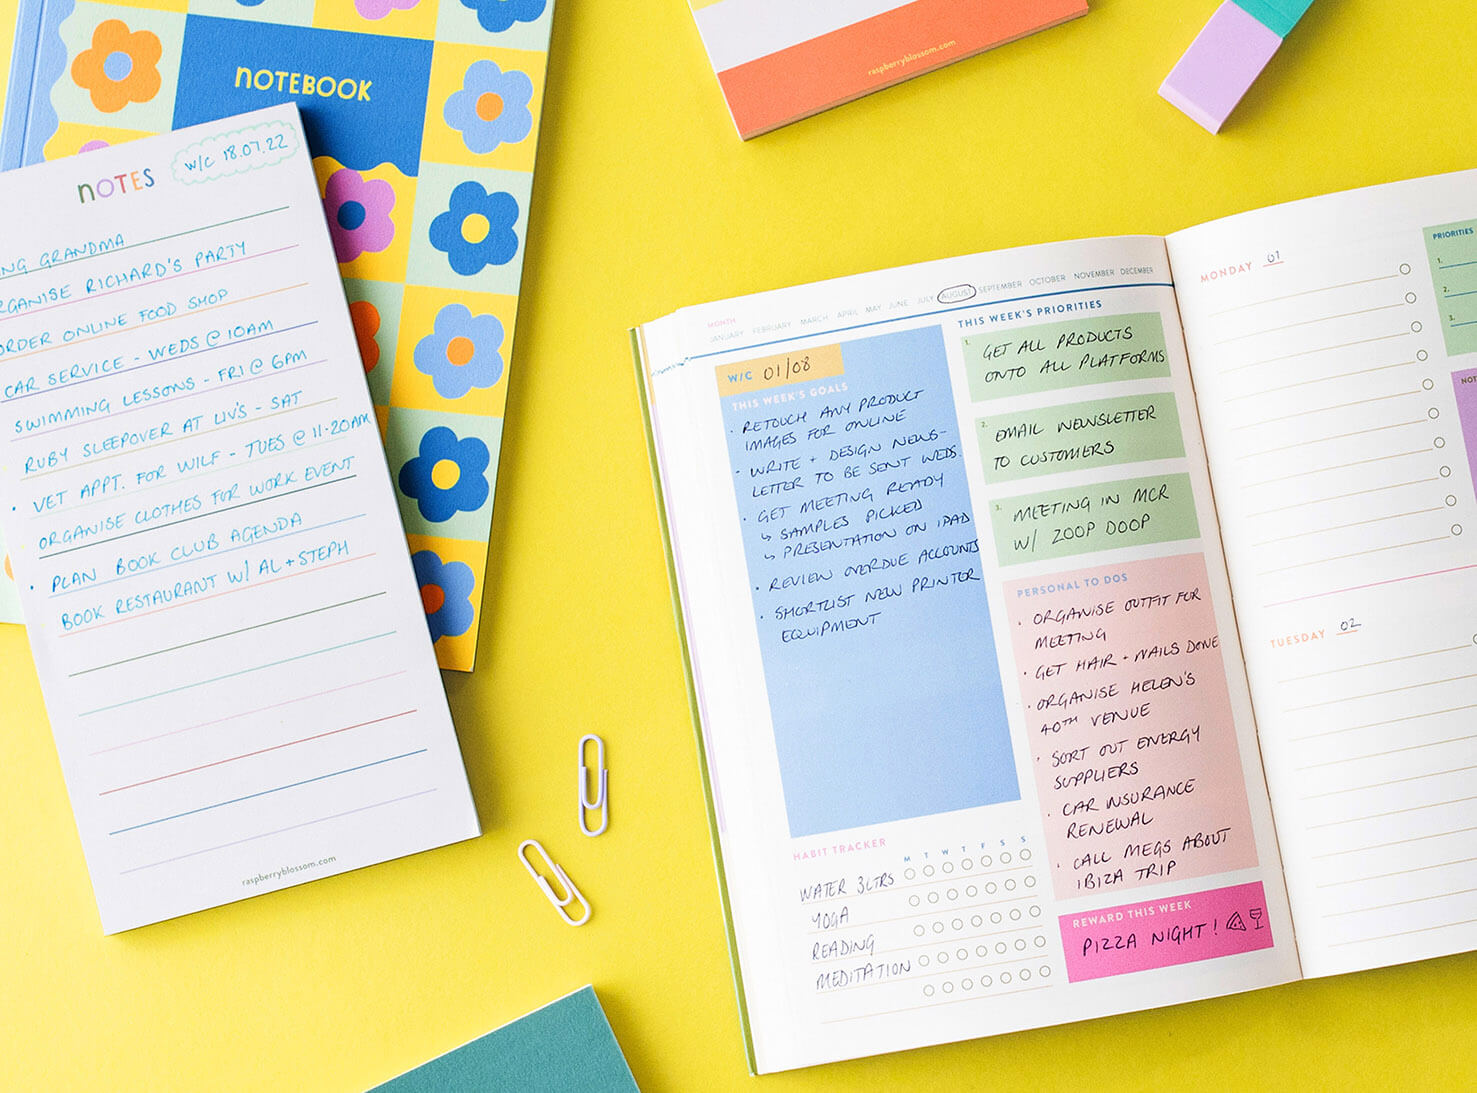 NOTEBOOK
NOTES
W/C 18.07.22
GRANDMA
RICHARD'S PARTY
ONLINE FOOD SHOP
CAR SERVICE - WEDS @ 10AM
SWIMMING LESSONS - FRI @ 6PM
RUBY SLEEPOVER AT LIV'S - SAT
• VET APPT. FOR WILF - TUES @ 11·20AM
ORGANISE CLOTHES FOR WORK EVENT
• PLAN BOOK CLUB AGENDA
BOOK RESTAURANT W/ AL + STEPH
raspberryblossom.com
raspberryblossom.com
MONTH
JANUARY FEBRUARY MARCH APRIL MAY JUNE JULY AUGUST SEPTEMBER OCTOBER NOVEMBER DECEMBER
W/C 01/08
THIS WEEK'S GOALS
• RETOUCH ANY PRODUCT
IMAGES FOR ONLINE
• WRITE + DESIGN NEWS-
LETTER TO BE SENT WEDS.
• GET MEETING READY
↳ SAMPLES PICKED
↳ PRESENTATION ON IPAD
• REVIEW OVERDUE ACCOUNTS
• SHORTLIST NEW PRINTER
EQUIPMENT
THIS WEEK'S PRIORITIES
1. GET ALL PRODUCTS
ONTO ALL PLATFORMS
2. EMAIL NEWSLETTER
TO CUSTOMERS
3. MEETING IN MCR
W/ ZOOP DOOP
PERSONAL TO DOS
• ORGANISE OUTFIT FOR
MEETING
• GET HAIR + NAILS DONE
• ORGANISE HELEN'S
40TH VENUE
• SORT OUT ENERGY
SUPPLIERS
• CAR INSURANCE
RENEWAL
• CALL MEGS ABOUT
IBIZA TRIP
HABIT TRACKER
M T W T F S S
WATER 3LTRS
YOGA
READING
MEDITATION
REWARD THIS WEEK
PIZZA NIGHT!
MONDAY 01
TUESDAY 02
PRIORITIES
1.
2.
3.